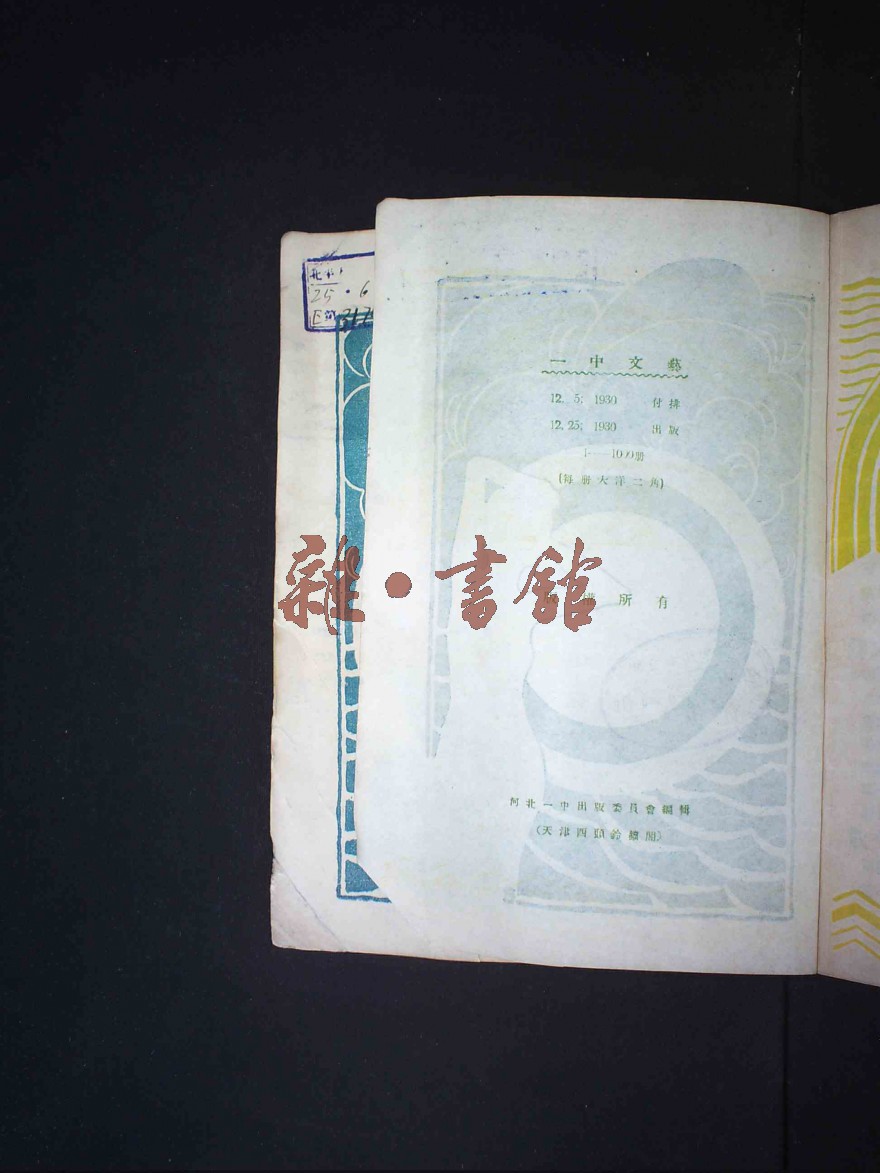 一中文藝
12. 5; 1930 付排
12, 25; 1930 出版
1——1000册
(每册大洋二角)
雜·書舘
所有
河北一中出版委員會編輯
(天津西頭鈴鐺閣)
25 · 6